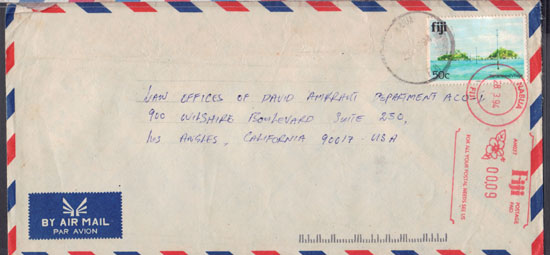 fiji
50c
LAW OFFICES OF DAVID AMRRANI DEPARTMENT A
900 WILSHIRE BOULEVARD SUITE 250,
LOS ANGLES, CALIFORNIA 90017 - USA
BY AIR MAIL
PAR AVION
NABUA
28.3.94
FIJI
FOR ALL YOUR POSTAL NEEDS SEE US
Fiji
POSTAGE
PAID
00.09